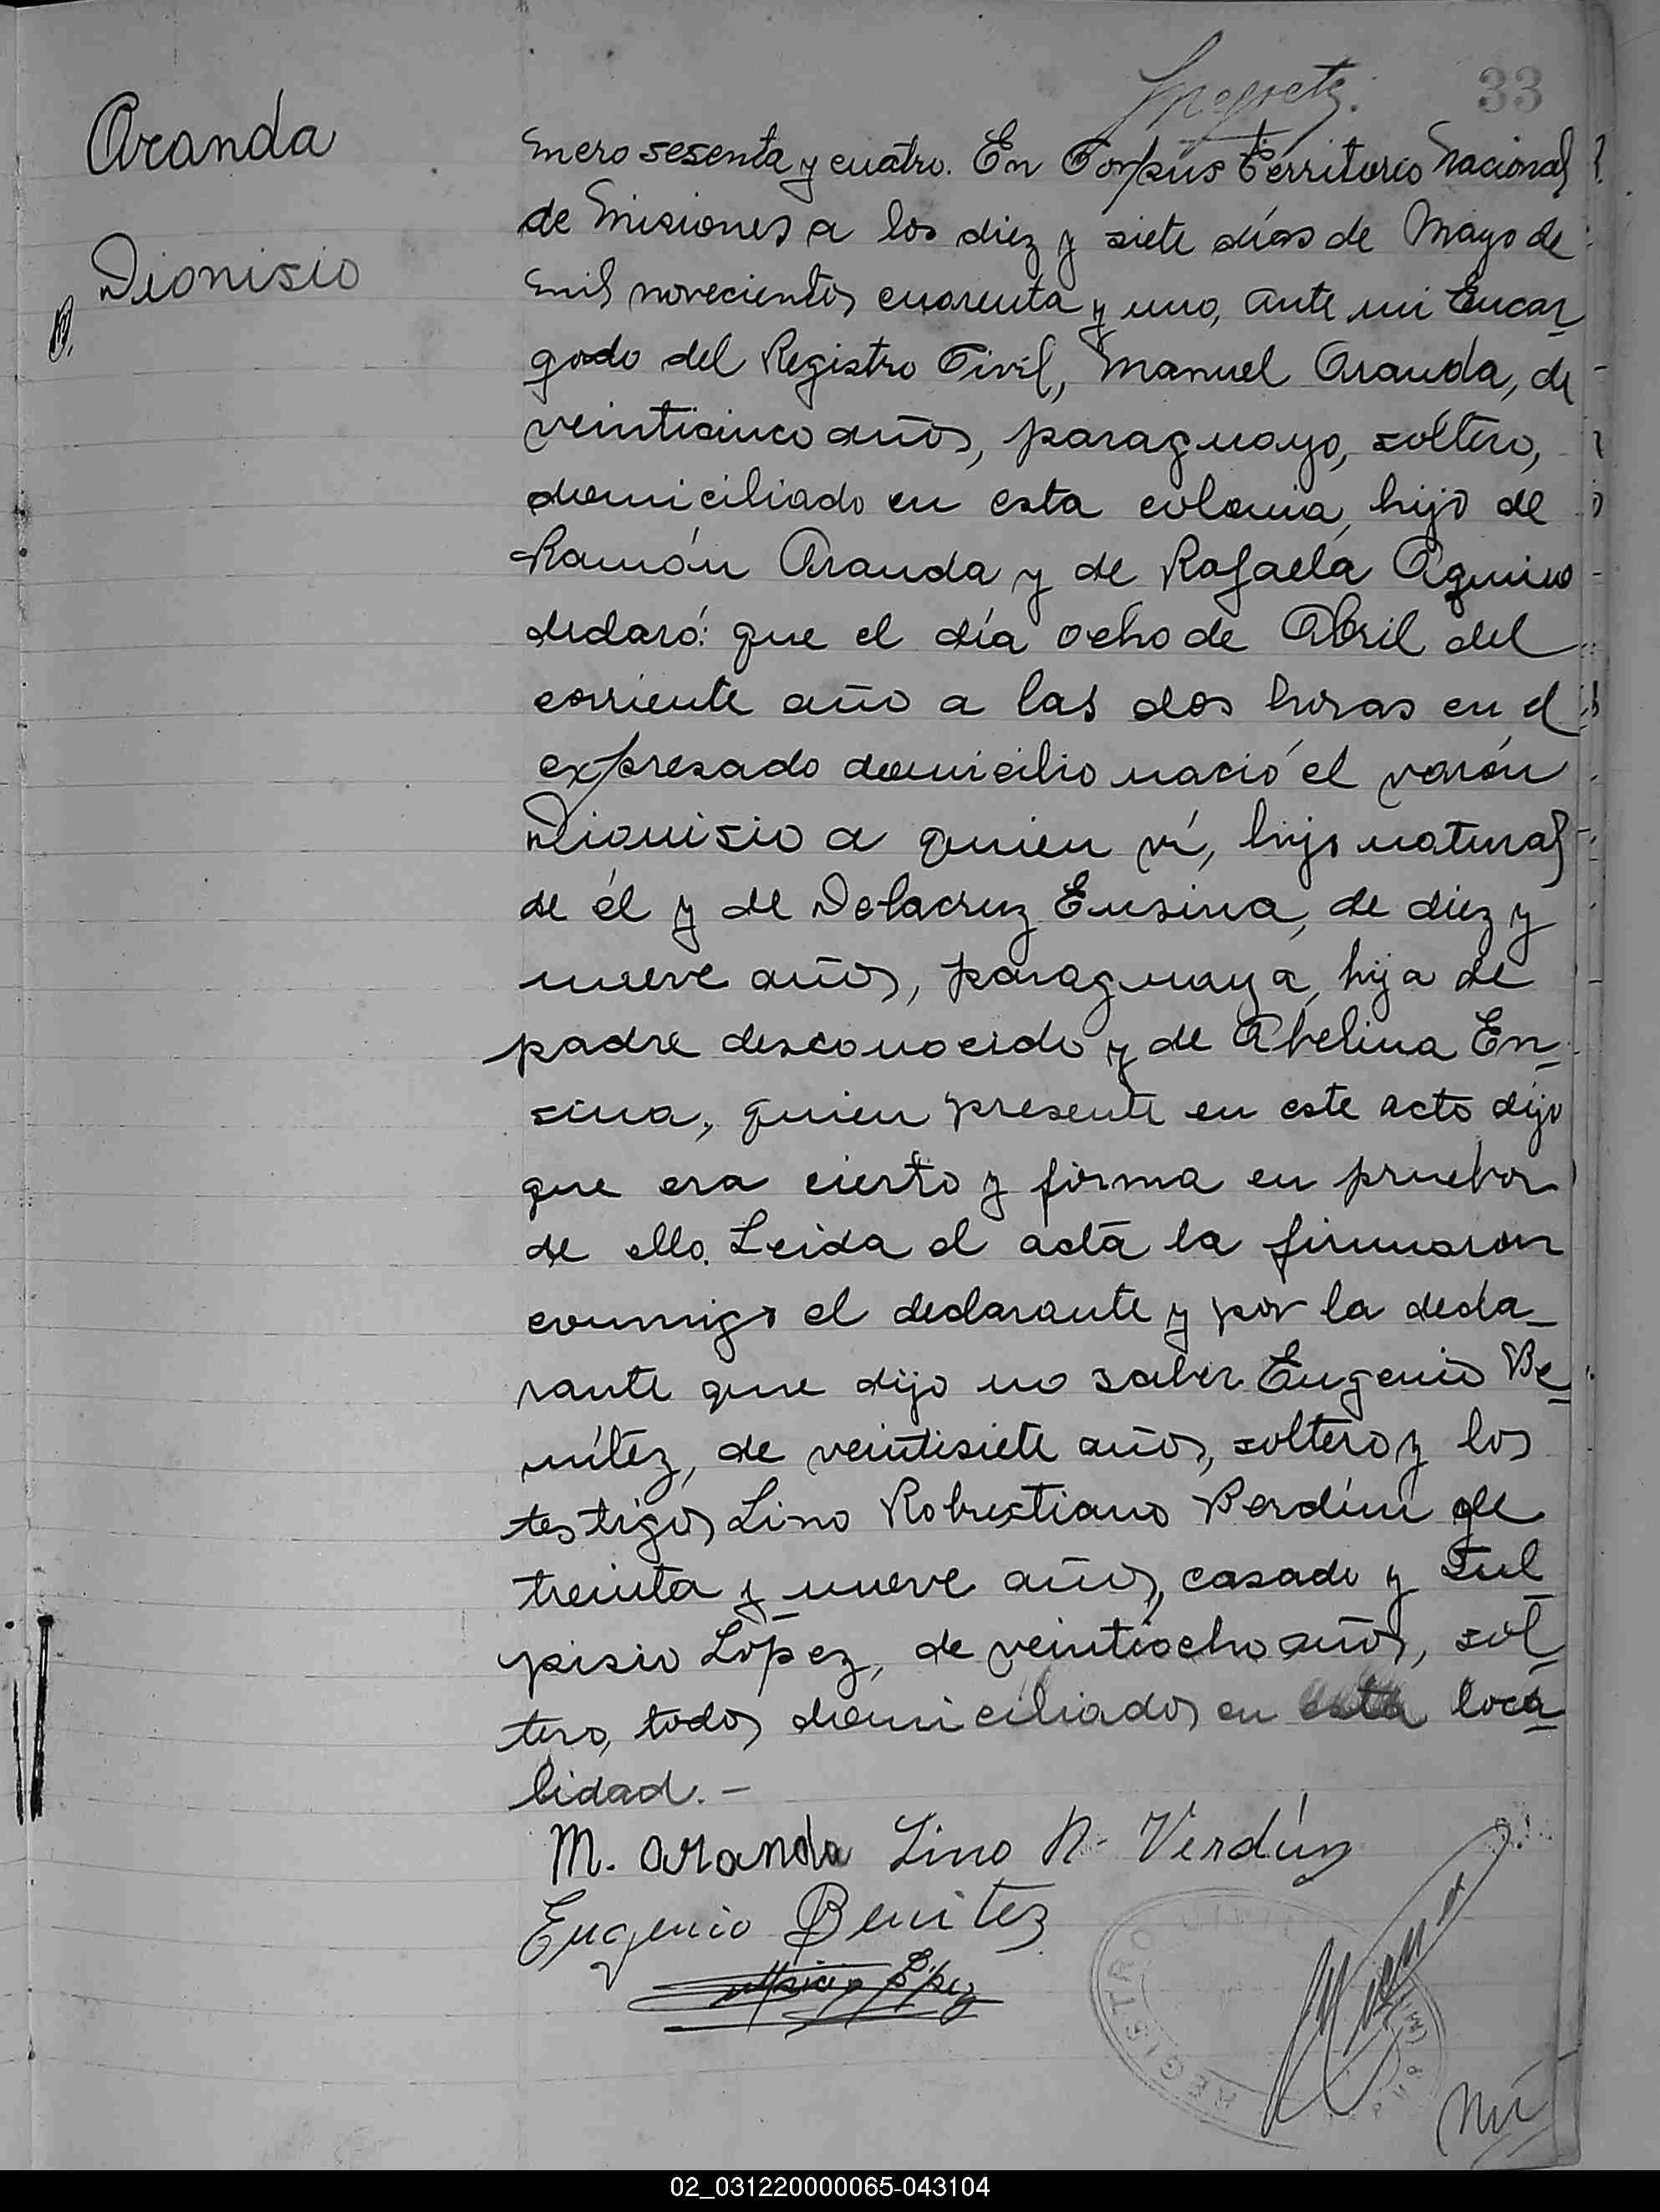 33
Aranda
Dionisio
Número sesenta y cuatro. En Corpus Territorio Nacional
de Misiones a los diez y siete días de Mayo de
mil novecientos cuarenta y uno, ante mi Encar_
gado del Registro Civil, Manuel Aranda, de
veinticinco años, paraguayo, soltero,
domiciliado en esta colonia, hijo de
Ramón Aranda y de Rafaela Aquino
declaró: que el día ocho de Abril del
corriente año a las dos horas en el
expresado domicilio nació el varón
Dionisio a quien ví, hijo natural
de él y de Delacruz Ensina, de diez y
nueve años, paraguaya, hija de
padre desconocido y de Abelina En_
sina, quien presente en este acto dijo
que era cierto y firma en prueba
de ello. Leida el acta la firmaron
conmigo el declarante y por la decla_
rante que dijo no saber Eugenio Be_
nítez, de veintisiete años, soltero y los
testigos Lino Robustiano Berdún de
treinta y nueve años, casado y Sul_
pisio López, de veintiocho años, sol_
tero, todos domiciliados en esta loca_
lidad.-
M. Aranda Lino R. Verdún
Eugenio Benitez
Sulpicio López
REGISTRO CIVIL
02_031220000065-043104